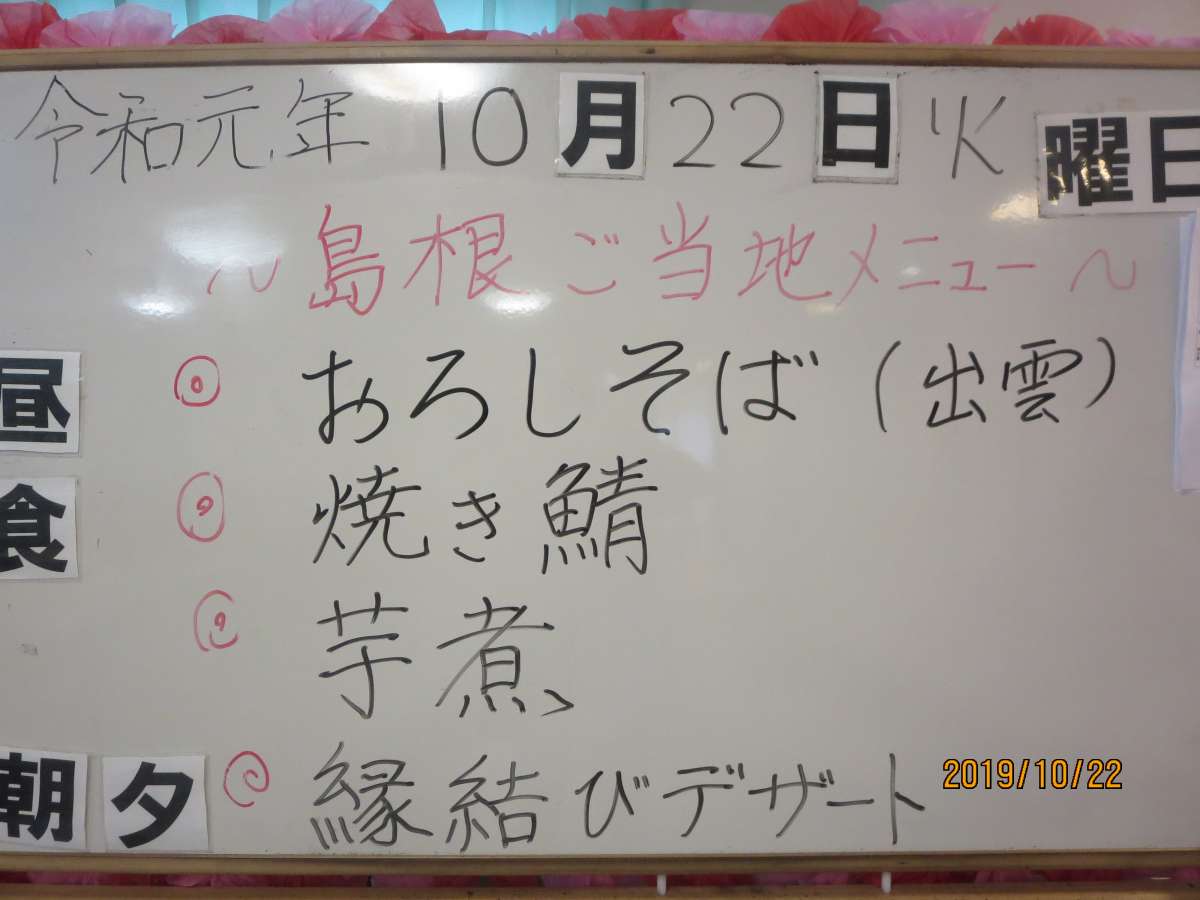 令和元年 10月22日 火曜日
～島根ご当地メニュー～
昼食
おろしそば(出雲)
焼き鯖
芋煮
朝夕
縁結びデザート
2019/10/22